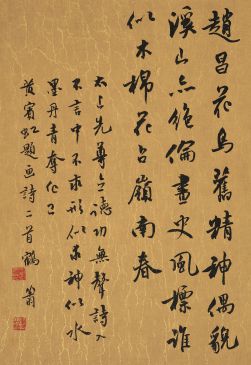 趙昌花鳥舊精神偶貌
溪山亦絕倫畫史風標誰
似木棉花占嶺南春
太上先尊立德功無聲詩入
不言中不求形似求神似水
墨丹青奪化工
黃賓虹題画詩二首鶴